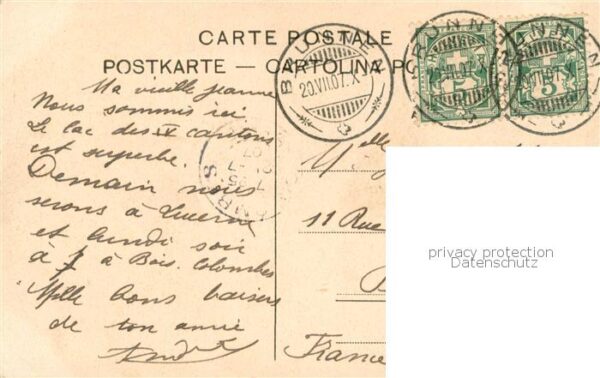 CARTE POSTALE
POSTKARTE — CARTOLINA PO
BRUNNEN
20.VII.07.X
BRUNNEN
20.VII.07.X
BRUNNEN
VII.07
5
5
Ma vieille Jeanne
Nous sommes ici
Le lac des IV cantons
est superbe.
Demain nous
serons à Lucerne
et lundi soir
à 7 à Bois. Colombes
Mille bons baisers
de ton amie
Mlle
11 Rue
France
privacy protection
Datenschutz